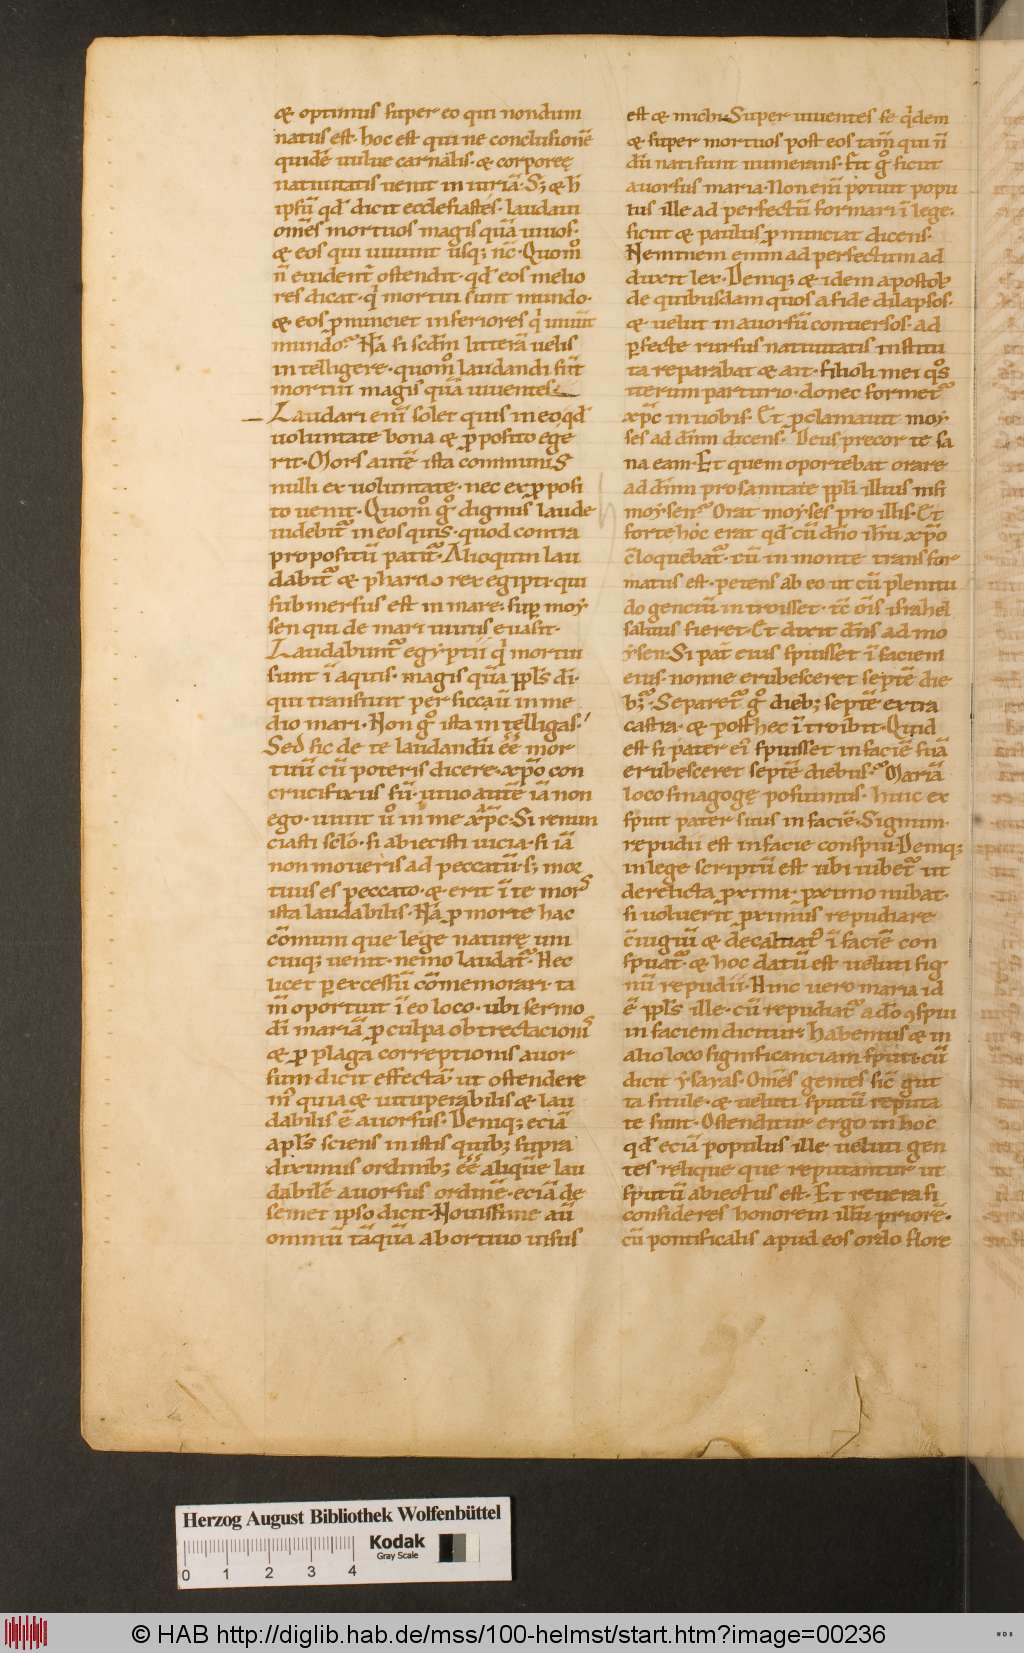 & optimus super eo qui nondum
natus est. hoc est qui ne conclusionē
quidē uulue carnalis. & corporeę
natiuitatis uenit in iuriā. Sꝫ & h̄
ipsū qd̄ dicit ecclesiastes. laudaui
omēs mortuos magis quā uiuos.
& eos qui uiuunt usqꝫ nc̄. Quom̊
n̄ euident̄ ostendit. qd̄ eos melio
res dicat. q̇ mortui sunt mundo.
& eos ꝓnunciet inferiores q̇ uiuūt
mundo. Nā si scdm̄ litterā uelis
intelligere. quom̊ laudandi sūt
mortui magis quā uiuentes.
Laudari enī solet quis in eo qd̄
uoluntate bona & ꝓposito ege
rit. Mors autē ista communis
nulli ex uoluntate. nec ex ꝓposi
to uenit. Quom̊ g̊ dignus laude
iudebit᷑ in eos quis. quod contra
propositū patit᷑. Alioquin lau
dabit᷑ & pharao rex egipti. qui
submersus est in mare. suꝑ moy
sen qui de mari uiuus euasit.
Laudabunt᷑ egyptii q̇ mortui
sunt ī aquis. magis quā ppl̄s di.
qui transiunt per siccaū in me
dio mari. Non g̊ ista intelligas.
Sed sic de te laudandū ēē mor
tuū cū poteris dicere. xp̄o con
crucifixus sū. uiuo autē iā non
ego. uiuit ů in me xp̄c. Si renun
ciasti sclo. si abiecisti uicia. si iā
non moueris ad peccatū. sꝫ mor
tuus es peccato. & erit ī te mors
ista laudabilis. Nā ꝓ morte hac
cōmum que lege naturę uni
cuiqꝫ uenit. nemo laudat᷑. Hec
licet ꝑ excessū cōmemorari. ta
m̄ oportuit ī eo loco. ubi sermo
dī mariā ꝓ culpa obtrectacionis
& ꝓ plaga correptionis auor
sum dicit effectā ut ostendere
m᷑ quia & uituperabilis & lau
dabilis ē auorsus. Deniqꝫ eciā
apl̄s sciens in istis quibꝫ supra
diximus ordinibꝫ ēē aliquē lau
dabilē auorsus ordinē. eciā de
semet ipso dicit. Nouissime aū
omniū tāquā abortiuo uisus
est & michi. Super uiuentes se q̇dem
& super mortuos post eos iam̄ qui n̄
dū nati sunt numerans. Fit g̊ sicut
auorsus maria. Non enī potuit popu
lus ille ad perfectū formari ī lege.
sicut & paulus ꝓnunciat dicens.
Neminem enim ad perfectum ad
duxit lex. Deniqꝫ & idem apostol
de quibusdam quos a fide dilapsos.
& uelut in auorsū conuersos. ad
ꝑfecte rursus natiuitatis institu
ta reparabat & ait. filioli mei q̊s
iterum parturio. donec formet᷑
xp̄c in uobis. Et ꝓclamauit moy
ses ad dnm̄ dicens. Deus precor te sa
na eam. Et quem oportebat orare
ad dnm̄ pro sanitate ppl̄i illius nisi
moysen. Orat moyses pro illis. Et
forte hoc erat qd̄ cū dn̄o ihu xp̄o
c̄loquebat᷑. cū in monte transfor
matus est. petens ab eo ut cū plenitu
do genciū introisset. tc̄ oīs israhel
saluus fieret. Et dixit dn̄s ad mo
ysen. Si pat̄ eius spuisset ī faciem
eius. nonne erubesceret septē die
bꝫ. Separet᷑ g̊ diebꝫ septē extra
castra. & post hec ītroibit. Quid
est si pater ei᷒ spuisset in faciē suā
erubesceret septē diebus. Mariā
loco sinagogę posuimus. huic ex
spuit pater suus in faciē. Signum
repudii est in facie conspui. Deniqꝫ
in lege scriptū est ubi iubet᷑ ut
derelicta proximi. proximo nubat.
si uoluerit proximus repudiare
c̄iugiū & decaluat᷑ ī faciē con
spuat᷑. & hoc datū est ueluti sig
nū repudii. Hinc uero maria id
ē ppl̄s ille. cū repudiat᷑ a do ꝯspui
in faciem dicitur. habemus & in
alio loco significanciam sputi. cū
dicit ysaias. Omēs gentes sic̄ gut
ta situle. & ueluti sputū reputa
te sunt. Ostenditur ergo in hoc
qd̄ eciā populus ille ueluti gen
tes relique que reputantur ut
sputū abiectus est. Et reuera si
consideres honorem illū priorē.
cū pontificalis apud eos ordo flore
Herzog August Bibliothek Wolfenbüttel
Kodak
Gray Scale
0 1 2 3 4
© HAB http://diglib.hab.de/mss/100-helmst/start.htm?image=00236